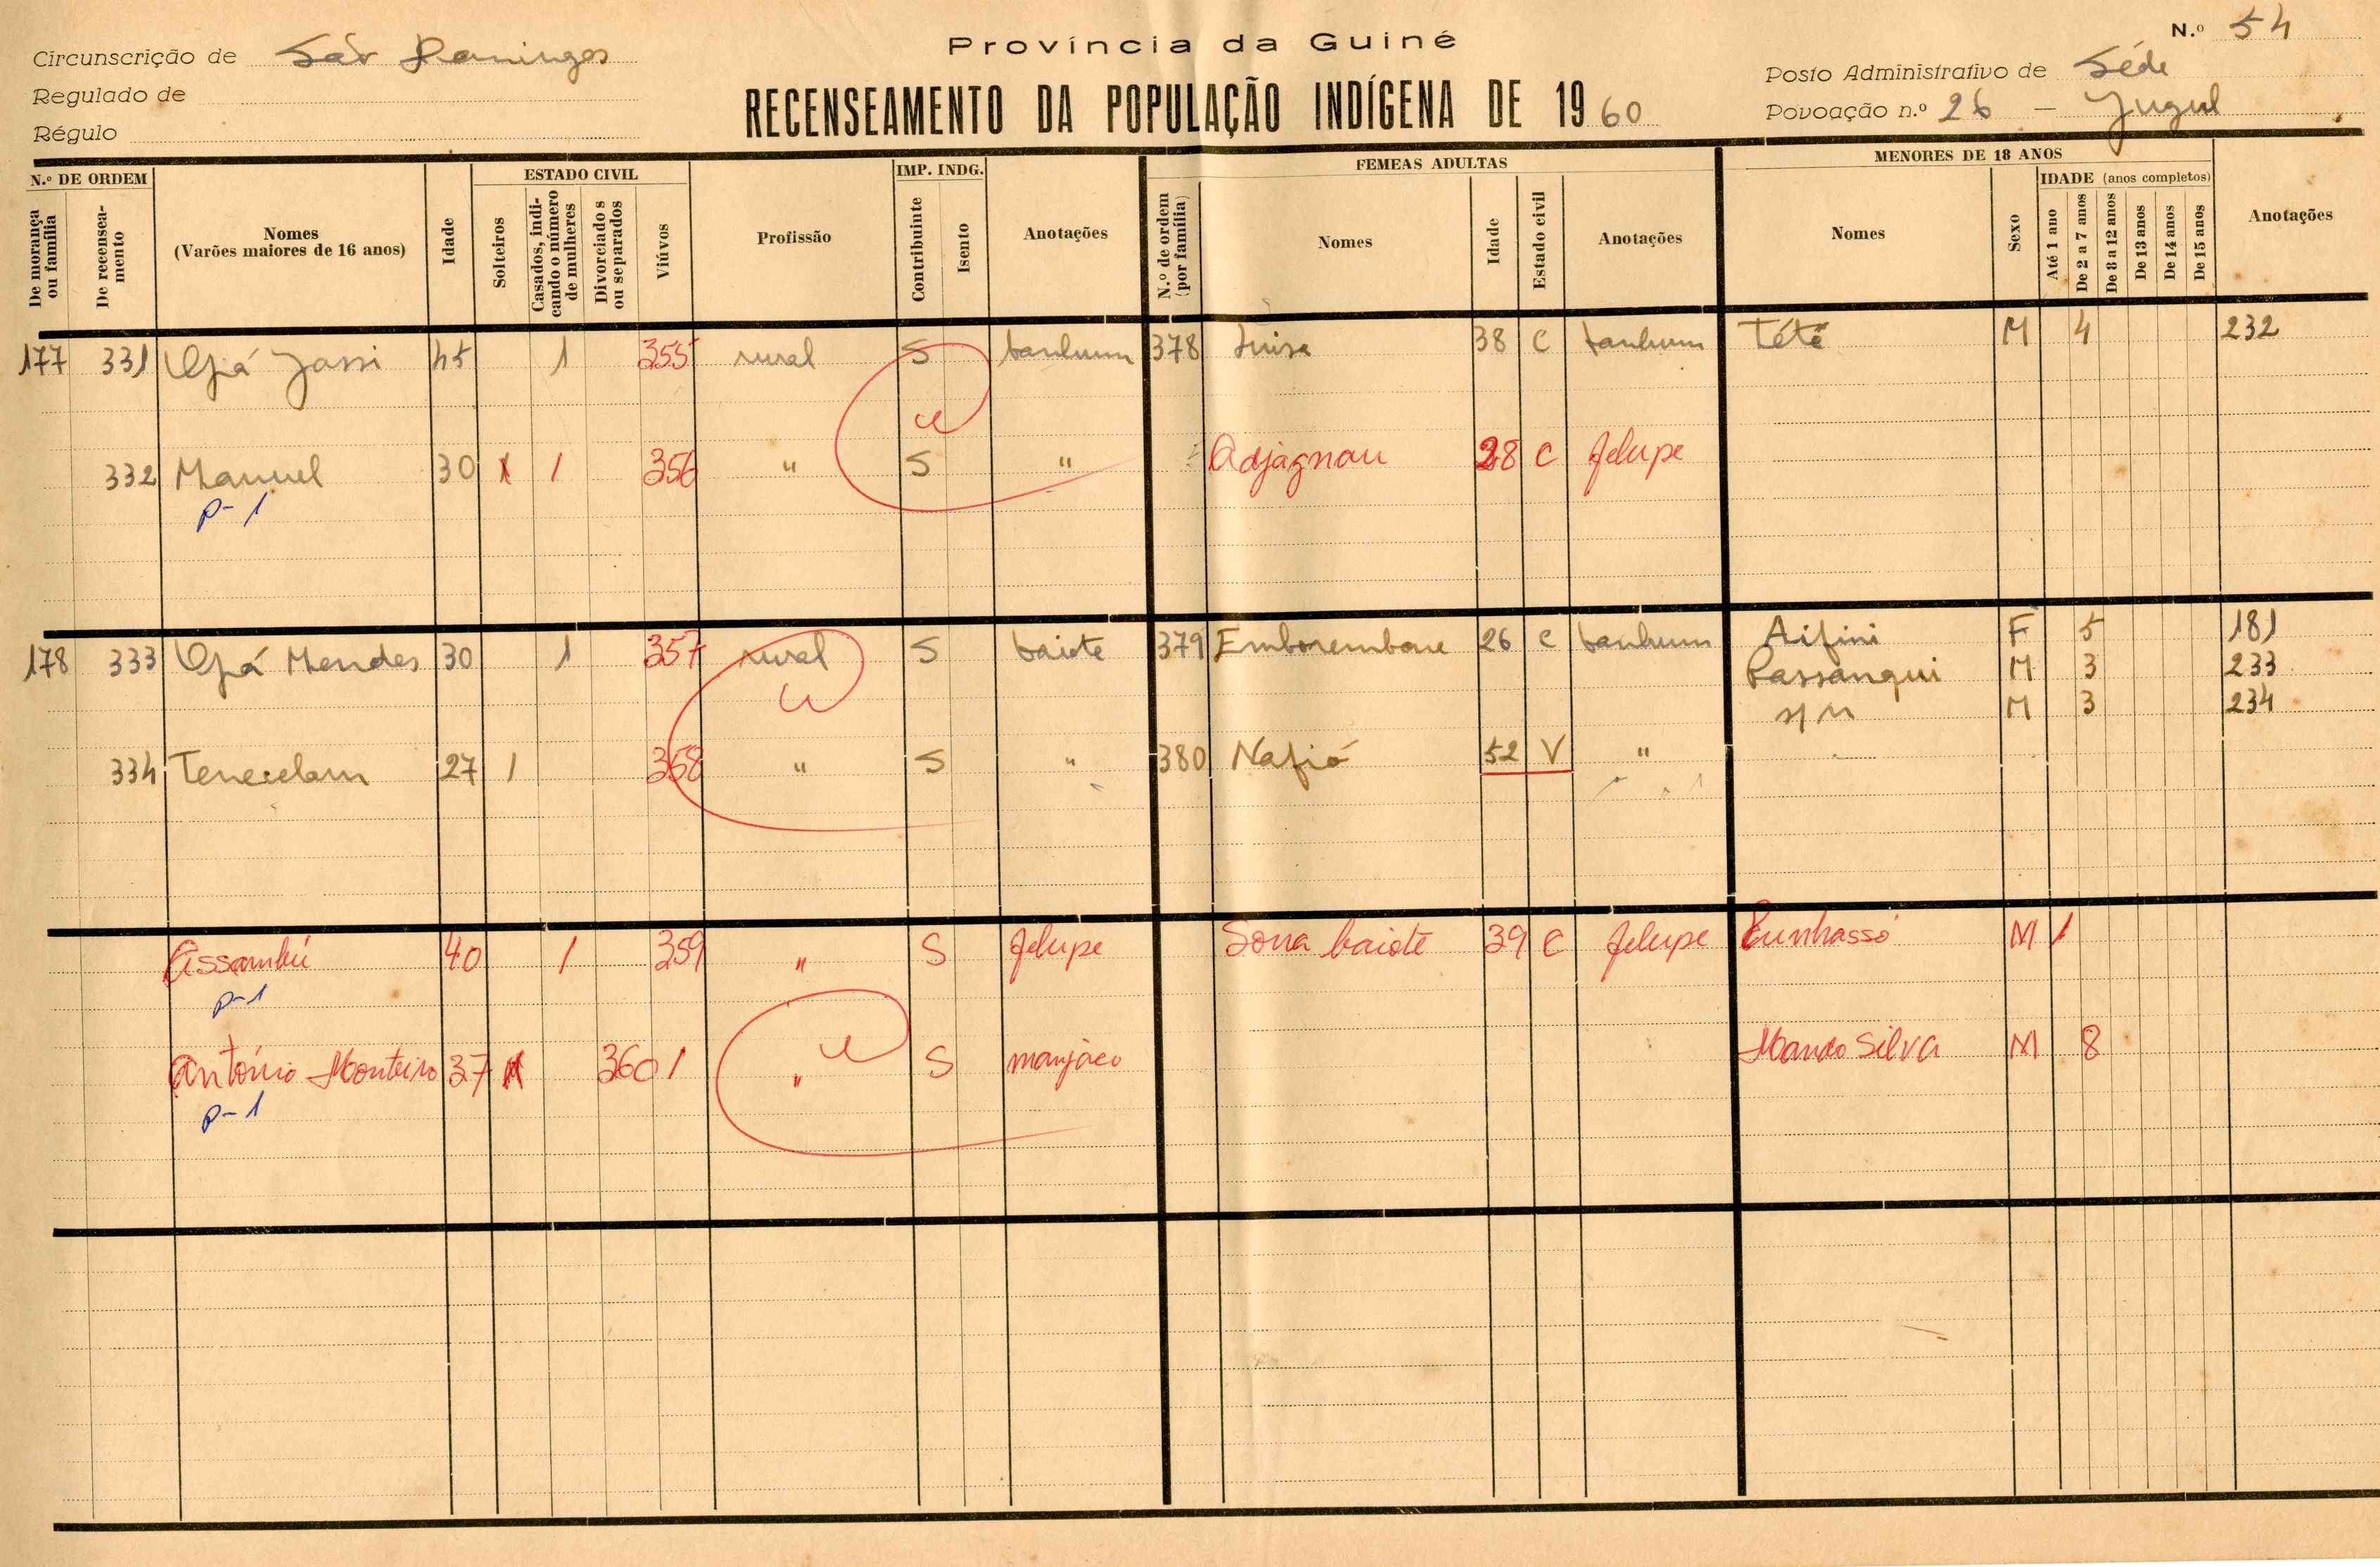 Província da Guiné
N.º 54
Circunscrição de São Domingos
Regulado de
Régulo
RECENSEAMENTO DA POPULAÇÃO INDÍGENA DE 1960
Posto Administrativo de Séde
Povoação n.º 26 — Jugul
N.º DE ORDEM
De morança ou família
De recenseamento
Nomes
(Varões maiores de 16 anos)
Idade
ESTADO CIVIL
Solteiros
Casados, indicando o número de mulheres
Divorciados ou separados
Viúvos
Profissão
IMP. INDG.
Contribuinte
Isento
Anotações
FEMEAS ADULTAS
N.º de ordem (por família)
Nomes
Idade
Estado civil
Anotações
MENORES DE 18 ANOS
Nomes
Sexo
IDADE (anos completos)
Até 1 ano
De 2 a 7 anos
De 8 a 12 anos
De 13 anos
De 14 anos
De 15 anos
Anotações
177 331 Jassi 45 1 355 rural S banhum 378 Luisa 38 C banhum Tété M 4 232
332 Manuel 30 1 356 " S " Adjagnau 28 C felupe
p-1
178 333 Mendes 30 1 357 rural S baiote 379 Emborembore 26 C banhum Aifini F 5 181
Passanqui M 3 233
s/n M 3 234
334 27 1 358 " S " 380 Nafió 52 V "
Assambú 40 1 359 " S felupe Sona baiote 39 C felupe M 1
p-1
António Monteiro 37 360 1 " S manjaco Silva M 8
p-1